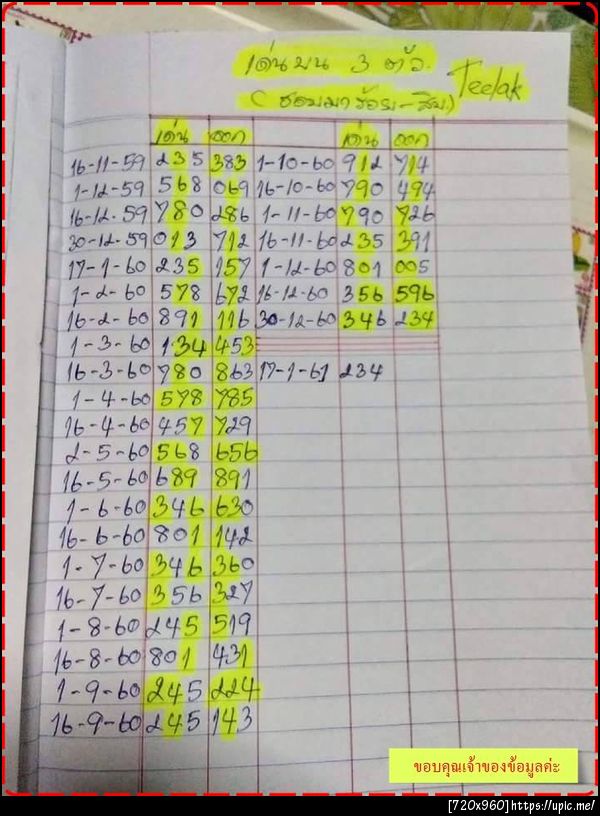 เด่นบน 3 ตัว. Teelak
(ชอบมาร้อย-สิบ)
เด่น ออก เด่น ออก
16-11-59 235 383 1-10-60 912 714
1-12-59 568 069 16-10-60 790 494
16-12-59 780 286 1-11-60 790 726
30-12-59 013 712 16-11-60 235 391
17-1-60 235 157 1-12-60 801 005
1-2-60 578 672 16-12-60 356 596
16-2-60 891 116 30-12-60 346 234
1-3-60 134 453
16-3-60 780 863 17-1-61 234
1-4-60 578 785
16-4-60 457 729
2-5-60 568 656
16-5-60 689 891
1-6-60 346 630
16-6-60 801 142
1-7-60 346 360
16-7-60 356 327
1-8-60 245 519
16-8-60 801 431
1-9-60 245 224
16-9-60 245 143
ขอบคุณเจ้าของข้อมูลค่ะ
[720x960]https://upic.me/